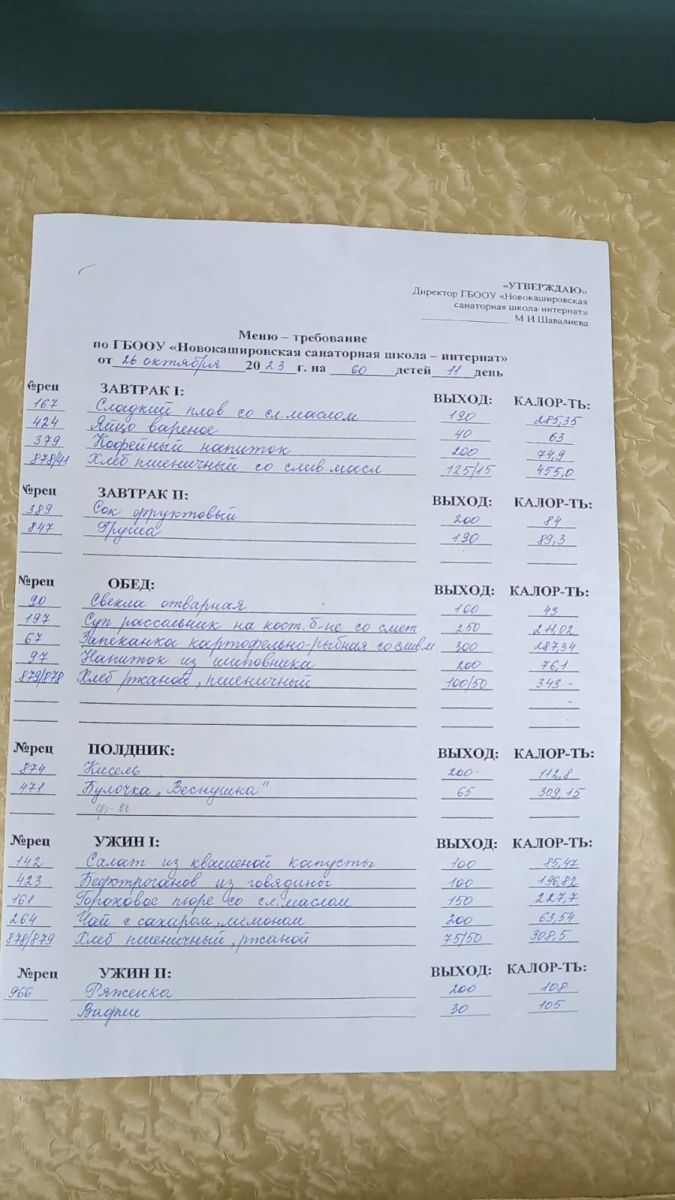 «УТВЕРЖДАЮ»
Директор ГБООУ «Новокашировская
санаторная школа-интернат»
М.И.Шавалиева
Меню – требование
по ГБООУ «Новокашировская санаторная школа – интернат»
от 26 октября 2023 г. на 60 детей 11 день
№рец ЗАВТРАК I: ВЫХОД: КАЛОР-ТЬ:
167 Сладкий плов со сл.маслом 190 285,35
424 Яйцо вареное 40 63
379 Кофейный напиток 200 74,9
878/41 Хлеб пшеничный со слив.масл 125/15 455,0
№рец ЗАВТРАК II: ВЫХОД: КАЛОР-ТЬ:
389 Сок фруктовый 200 84
847 Груша 190 89,3
№рец ОБЕД: ВЫХОД: КАЛОР-ТЬ:
90 Свекла отварная 100 43
197 Суп рассольник на кост. б-не со смет 250 211,02
67 Запеканка картофельно-рыбная со слив.м 300 287,34
97 Напиток из шиповника 200 76,1
879/878 Хлеб ржаной, пшеничный 100/50 343 -
№рец ПОЛДНИК: ВЫХОД: КАЛОР-ТЬ:
874 Кисель 200 112,8
471 Булочка „Веснушка" 65 309,15
№рец УЖИН I: ВЫХОД: КАЛОР-ТЬ:
142 Салат из квашеной капусты 100 85,47
423 Бефстроганов из говядины 100 196,82
161 Гороховое пюре со сл.маслом 150 227,7
264 Чай с сахаром, лимоном 200 63,54
878/879 Хлеб пшеничный, ржаной 75/50 308,5
№рец УЖИН II: ВЫХОД: КАЛОР-ТЬ:
966 Ряженка 200 108
Вафли 30 105